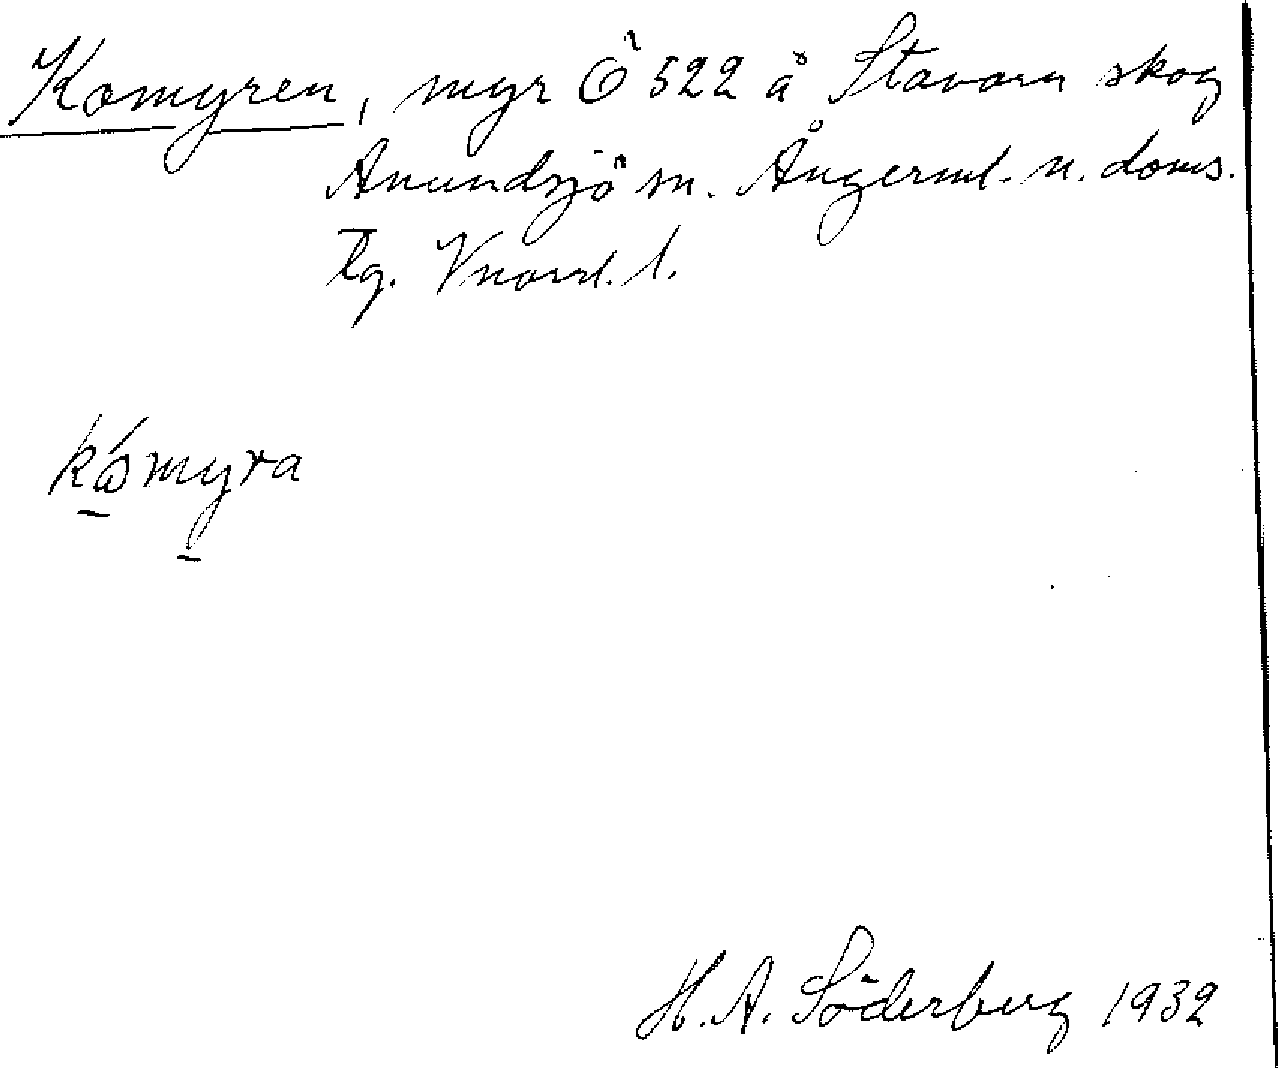 Komyren, myr Ö 522 å Stavarn skog
Anundsjö sn. Ångerml. n. doms.
Tg. Vnord. l.
kómyra
H. A. Söderberg 1932